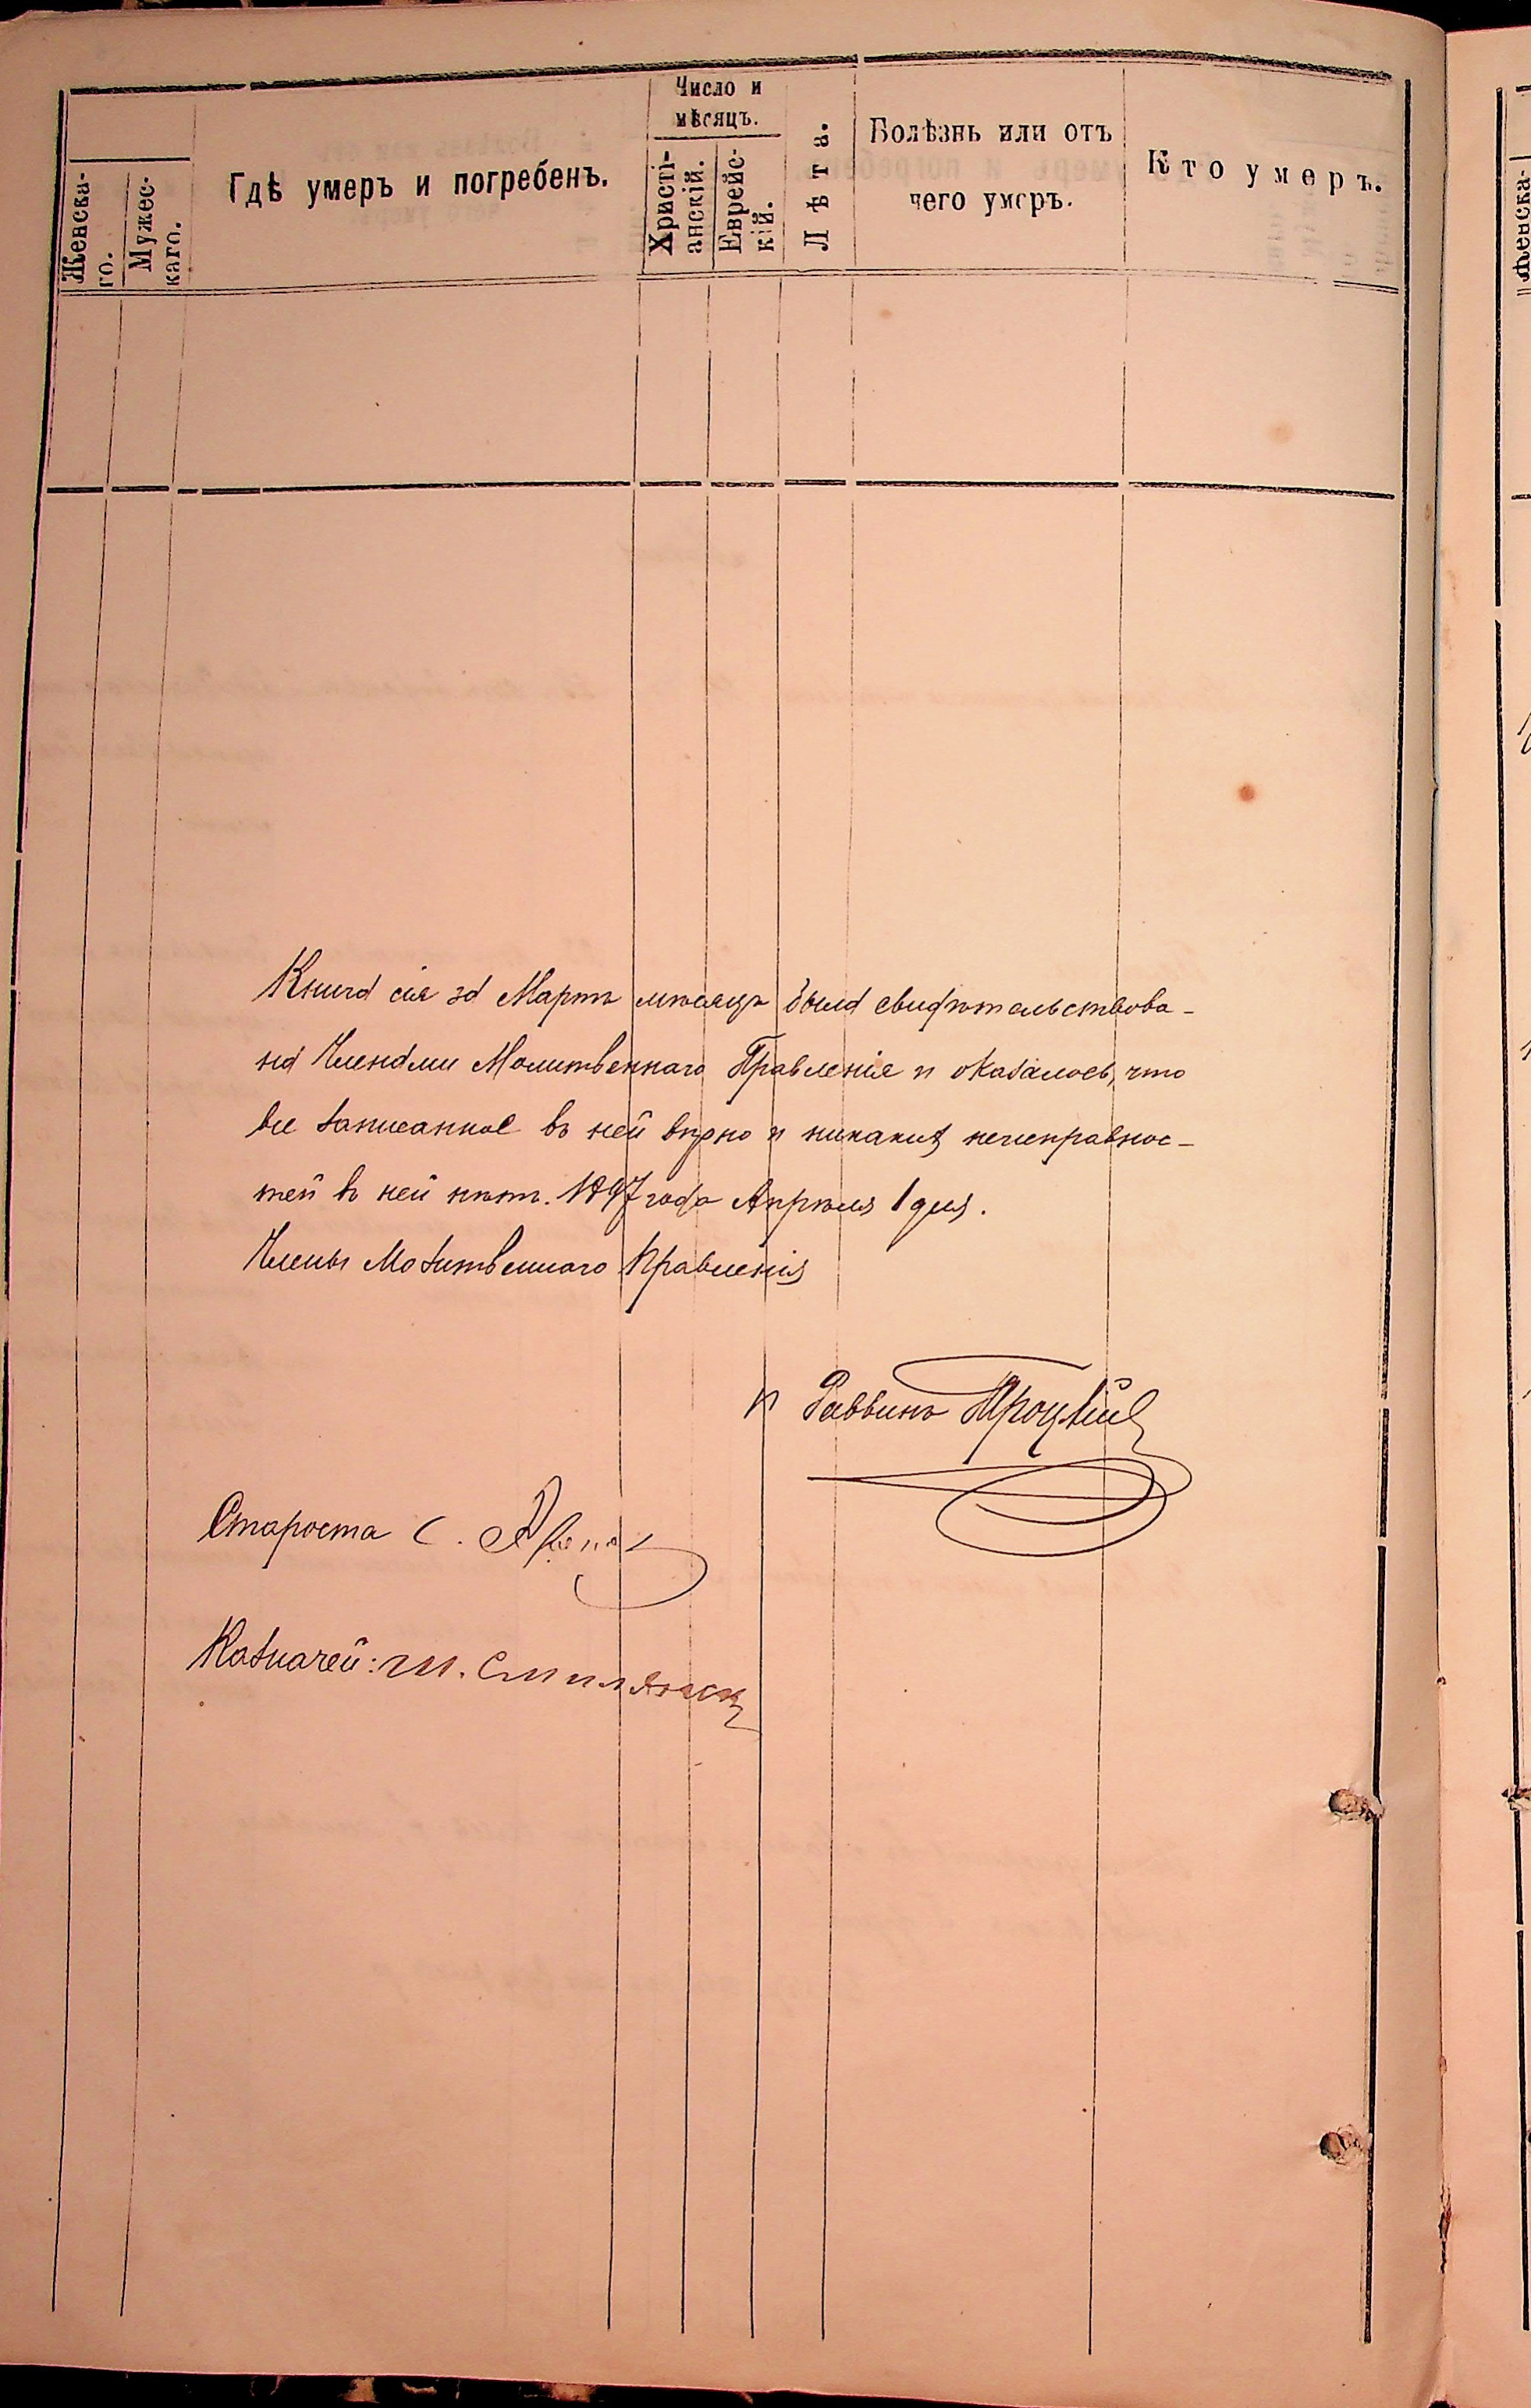 Женска-
го.
Мужес-
каго.
Гдѣ умеръ и погребенъ.
Число и
мѣсяцъ.
Христі-
анскій.
Еврейс-
кій.
Лѣта.
Болѣзнь или отъ
чего умеръ.
Кто умеръ.
Книга сія за Мартъ мѣсяцъ была свидѣтельствова-
на Членами Молитвеннаго Правленія и оказалось, что
все записанное въ ней вѣрно и никакихъ неисправнос-
тей въ ней нѣтъ. 1897 года Апрѣля 1 дня.
Члены Молитвеннаго Правленія
И Раввинъ Троцкій
Староста С.
Казначей: Ш. Смилянск
Женска-